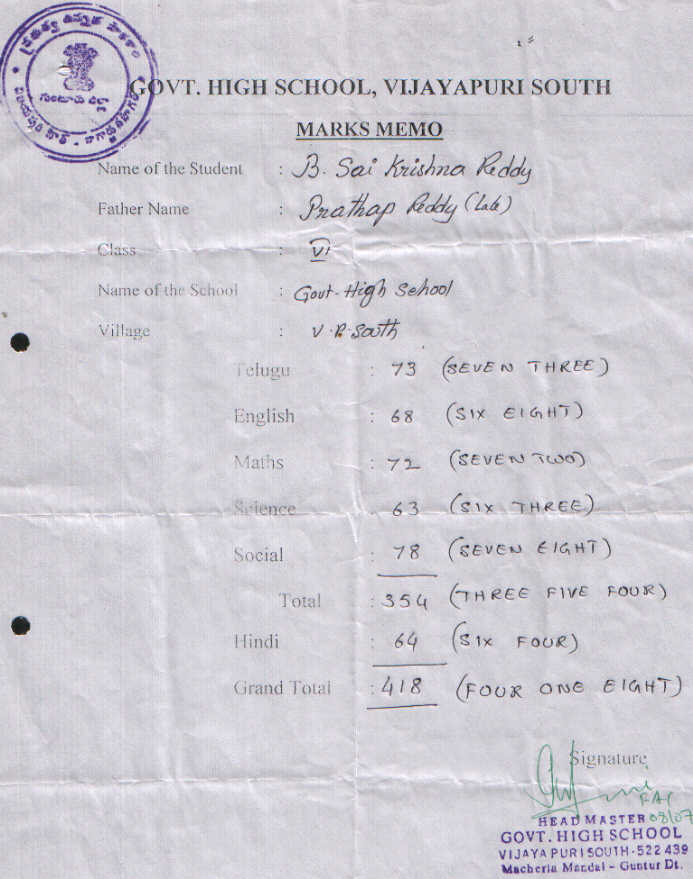 ప్రభుత్వ ఉన్నత పాఠశాల
గుంటూరు జిల్లా
GOVT. HIGH SCHOOL, VIJAYAPURI SOUTH
MARKS MEMO
Name of the Student : B. Sai Krishna Reddy
Father Name : Prathap Reddy (Late)
Class : VI
Name of the School : Govt. High School
Village : V.P. South
Telugu : 73 (SEVEN THREE)
English : 68 (SIX EIGHT)
Maths : 72 (SEVEN TWO)
Science : 63 (SIX THREE)
Social : 78 (SEVEN EIGHT)
Total : 354 (THREE FIVE FOUR)
Hindi : 64 (SIX FOUR)
Grand Total : 418 (FOUR ONE EIGHT)
Signature
HEAD MASTER
GOVT. HIGH SCHOOL
VIJAYA PURI SOUTH-522 439
Macherla Mandal - Guntur Dt.